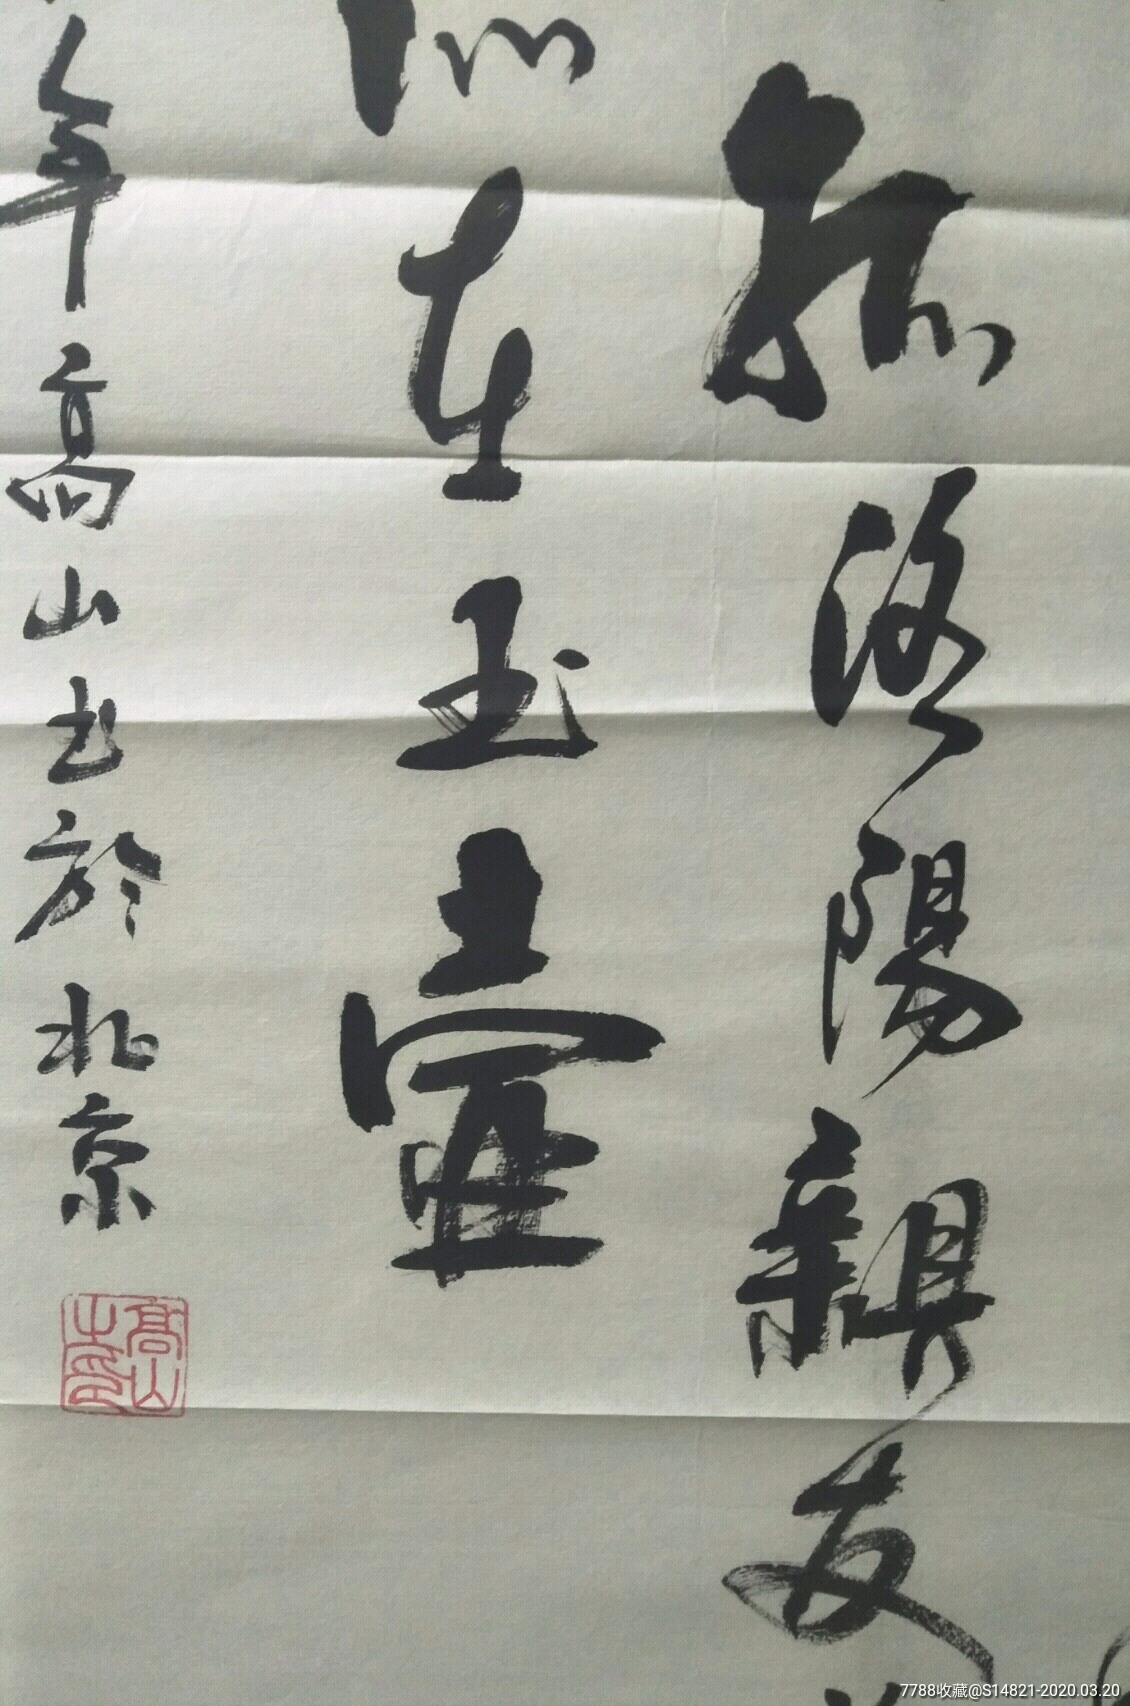 孤洛陽親友
心在玉壺
年高山书於北京
高山之印
7788收藏@S14821-2020.03.20